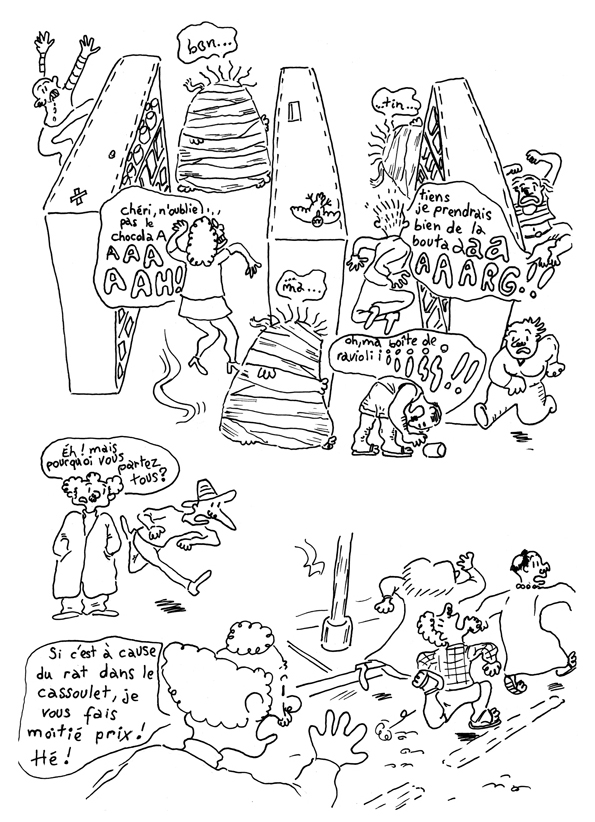 bon...
...tin...
chéri, n'oublie
pas le
chocolaA
AAA
AAH!
tiens
je prendrais
bien de la
boutaaaa
AAAARG..!!
...ma...
oh, ma boîte de
ravioliiiiiiisss..!!
Éh! mais
pourquoi vous partez
tous?
Si c'est à cause
du rat dans le
cassoulet, je
vous fais
moitié prix!
Hé!